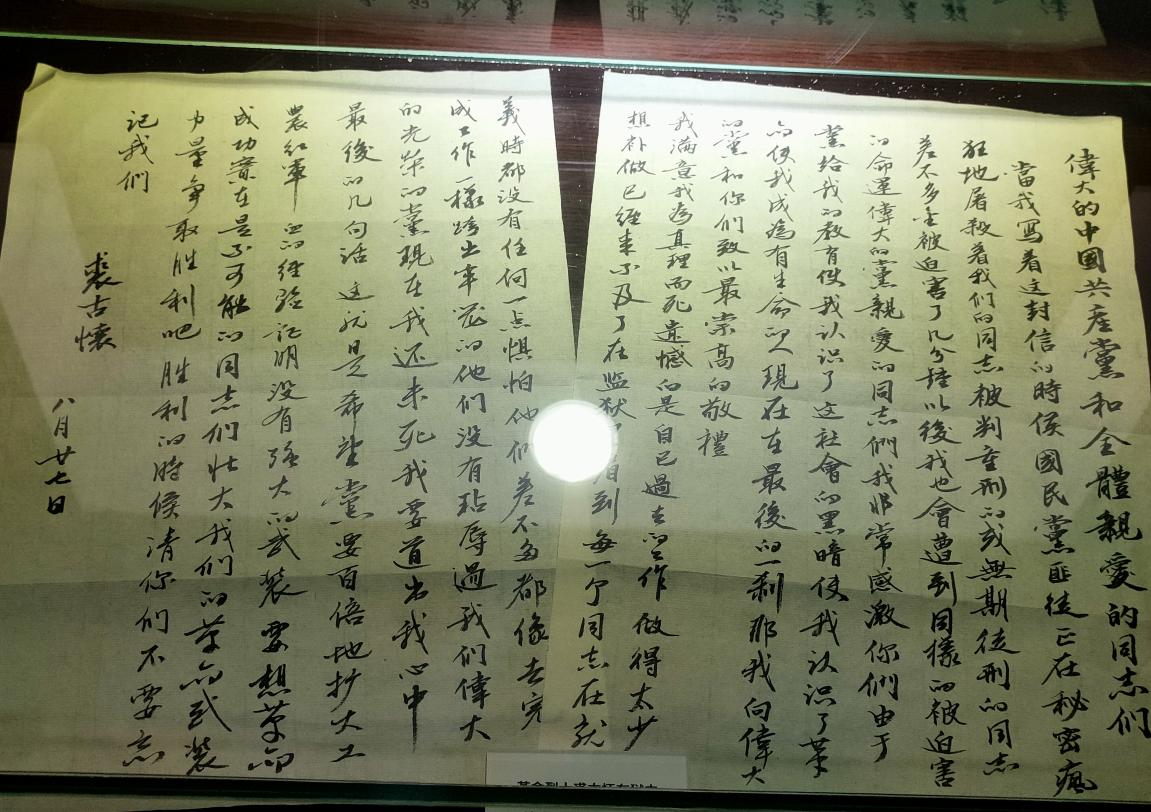 偉大的中國共產黨和全體親愛的同志们
當我寫着这封信的時侯國民黨匪徒正在秘密瘋
狂地屠殺着我们的同志被判重刑的或無期徒刑的同志
差不多全被迫害了几分鐘以後我也會遭到同樣的被迫害
的命運偉大的黨親愛的同志們我非常感激你們由于
黨给我的教育使我认识了这社會的黑暗使我认识了革
命使我成為有生命的人現在在最後的一刹那我向偉大
的黨和你们致以最崇高的敬禮
我满意我為真理而死遗憾的是自己過去的工作做得太少
想补做已经来不及了在监狱 看到每一个同志在就
義時都没有任何一点惧怕他们差不多都像去完
成工作一樣跨出牢笼的他们没有玷辱過我们偉大
的光荣的黨現在我还未死我要道出我心中
最後的几句话这就是希望黨要百倍地扩大工
農红軍 血的经验证明没有强大的武装要想革命
成功實在是不可能的同志们壮大我们的革命武装
力量争取胜利吧胜利的時候请你们不要忘
记我们
裘古懷
八月廿七日